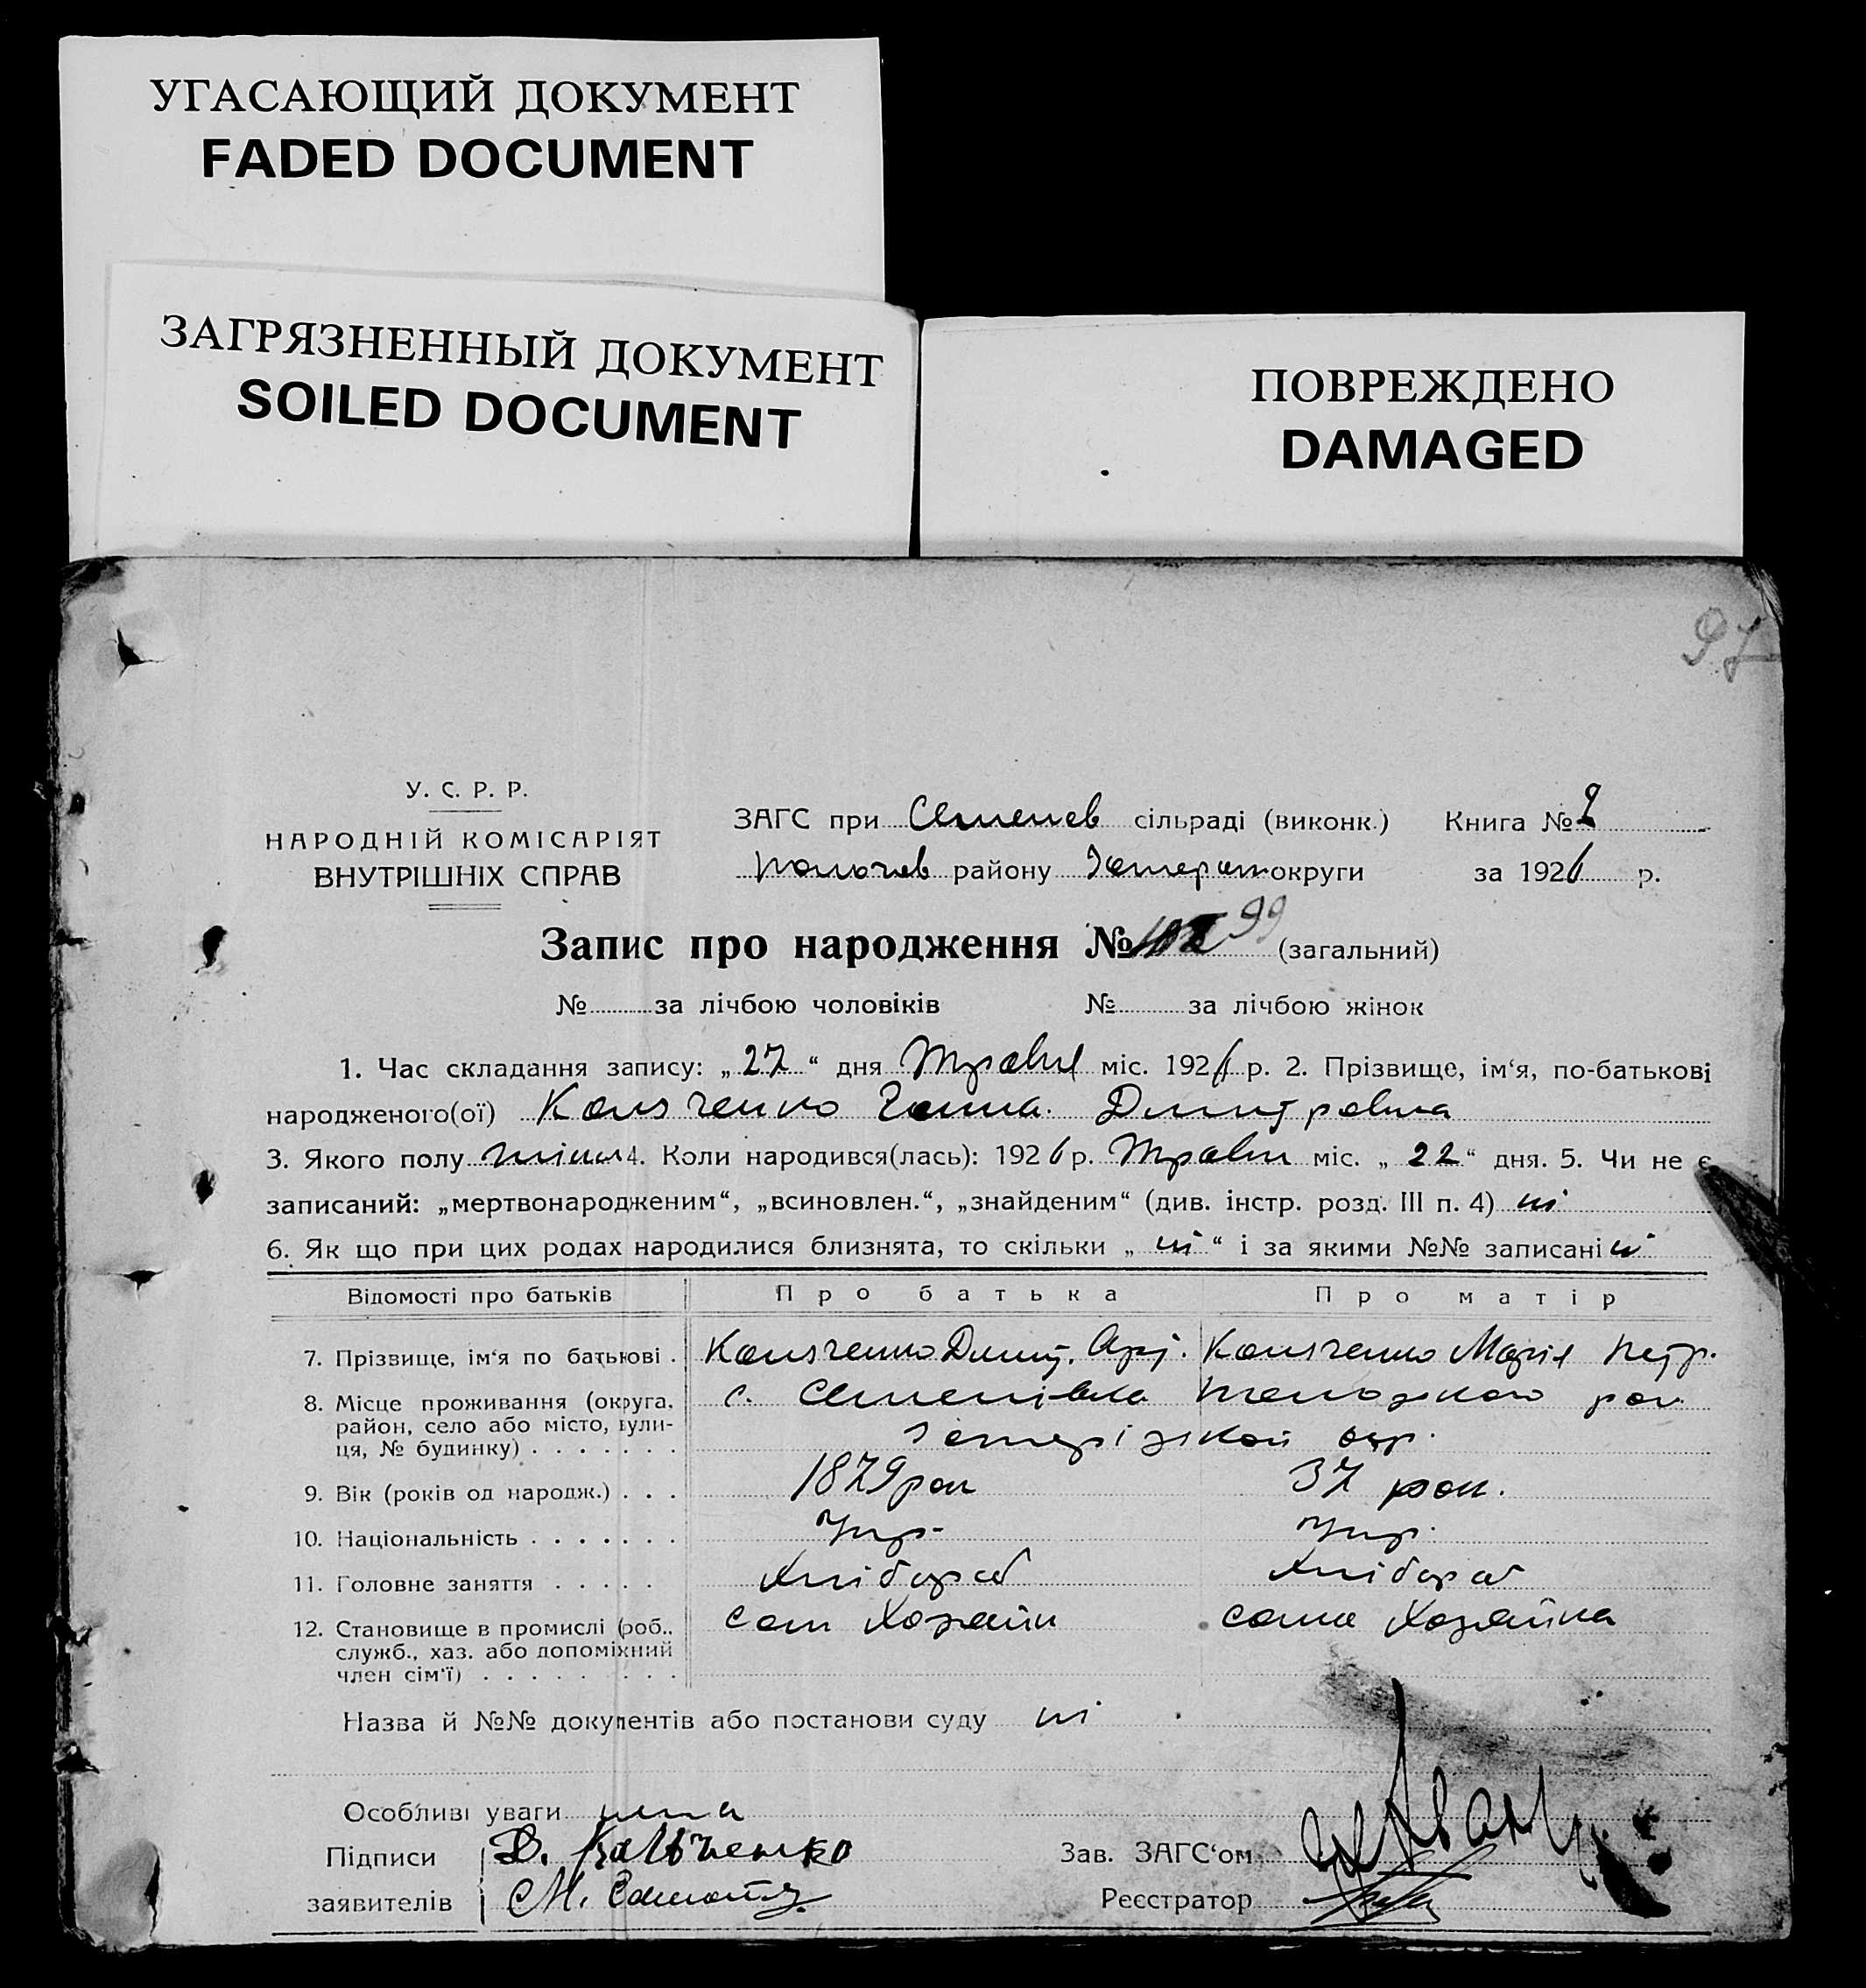 УГАСАЮЩИЙ ДОКУМЕНТ
FADED DOCUMENT
ЗАГРЯЗНЕННЫЙ ДОКУМЕНТ
SOILED DOCUMENT
ПОВРЕЖДЕНО
DAMAGED
97
У. С. Р. Р.
НАРОДНІЙ КОМІСАРІЯТ
ВНУТРІШНІХ СПРАВ
ЗАГС при Семенів сільраді (виконк.) Книга № 2
району округи за 1926 р.
Запис про народження № 99 (загальний)
№ за лічбою чоловіків № за лічбою жінок
1. Час складання запису: „27“ дня Травня міс. 1926 р. 2. Прізвище, ім‘я, по-батькові
народженого(ої) Кальченко Ганна Дмитровна
3. Якого полу жіноч 4. Коли народився(лась): 1926 р. Травня міс. „22“ дня. 5. Чи не є
записаний: „мертвонародженим“, „всиновлен.“, „знайденим“ (див. інстр. розд. III п. 4) ні
6. Як що при цих родах народилися близнята, то скільки „ні“ і за якими №№ записані ні
Відомості про батьків Про батька Про матір
7. Прізвище, ім‘я по батькові . Кальченко Дмит. Кальченко Марія Петр.
8. Місце проживання (округа, с. Семенівка рай.
район, село або місто, вули-
ця, № будинку) . . . . . . . окр.
9. Вік (років од народж.) . . . 1879 рок 37 рок.
10. Національність . . . . . . . Укр. Укр.
11. Головне заняття . . . . . Хлібороб Хлібороб
12. Становище в промислі (роб., сам Хозяїн сама Хозяйка
служб., хаз. або допоміжний
член сім‘ї) . . . . . . . . .
Назва й №№ документів або постанови суду ні
Особливі уваги нема
Підписи Д. Кальченко Зав. ЗАГС‘ом
заявителів М. Реєстратор